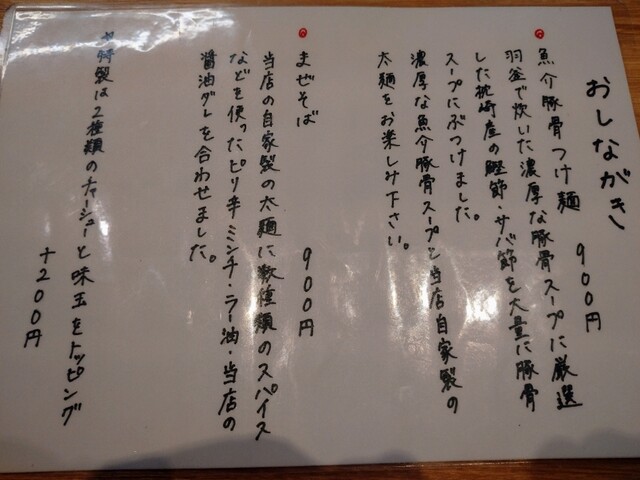 おしながき
魚介豚骨つけ麺 900円
羽釜で炊いた濃厚な豚骨スープに厳選
した枕崎産の鰹節・サバ節を大量に豚骨
スープにぶつけました。
濃厚な魚介豚骨スープと当店自家製の
太麺をお楽しみ下さい。
まぜそば 900円
当店の自家製の太麺に数種類のスパイス
などを使ったピリ辛ミンチ・ラー油・当店の
醤油ダレを合わせました。
☆特製は2種類のチャーシューと味玉をトッピング
+200円